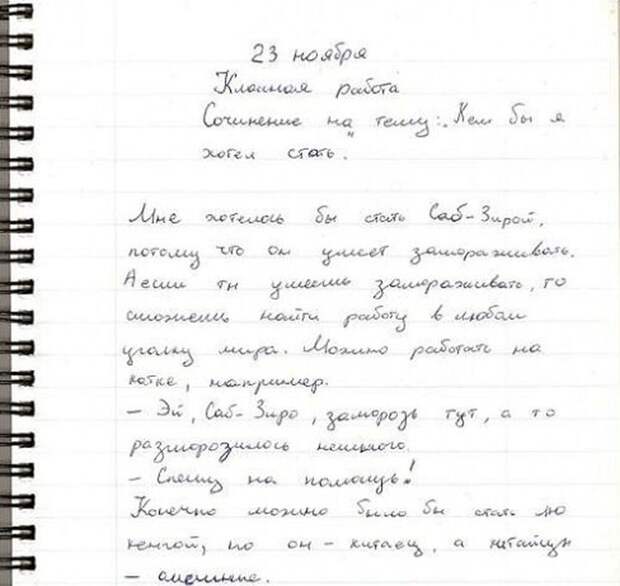 23 ноября
Классная работа
Сочинение на тему: "Кем бы я
хотел стать.
Мне хотелось бы стать Саб-Зирой,
потому что он умеет замораживать.
А если ты умеешь замораживать, то
сможешь найти работу в любом
уголку мира. Можно работать на
катке, например.
– Эй, Саб-Зиро, заморозь тут, а то
разморозилось немного.
– Спешу на помощь!
Конечно можно было бы стать Лю
кенгой, но он – китаец, а китайцы
– смешные.